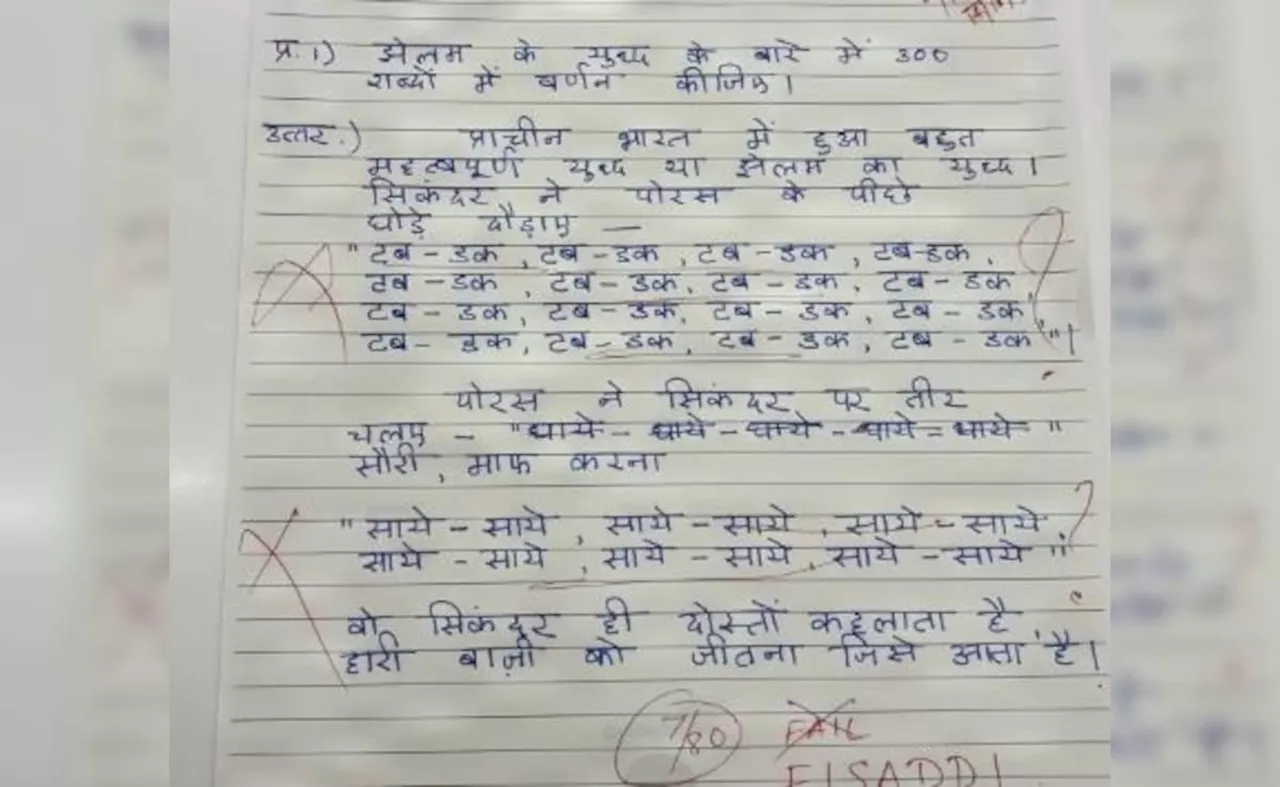 प्र.1) झेलम के युध्द के बारे में 300
शब्दों में वर्णन कीजिए।
उत्तर.) प्राचीन भारत में हुआ बहुत
महत्वपूर्ण युध्द था झेलम का युध्द।
सिकंदर ने पोरस के पीछे
घोड़े दौड़ाए —
"टब - डक, टब - डक, टब - डक, टब-डक,
टब - डक, टब - डक, टब - डक, टब - डक
टब - डक, टब - डक, टब - डक, टब - डक
टब - डक, टब - डक, टब - डक, टब - डक"।
पोरस ने सिकंदर पर तीर
चलाए - "धाये - धाये - धाये - धाये - धाये"
सौरी, माफ करना
"साये - साये, साये - साये, साये - साये
साये - साये, साये - साये, साये - साये"
वो सिकंदर ही दोस्तों कहलाता है,
हारी बाज़ी को जीतना जिसे आता है।
7/80 FAIL
FISADDI